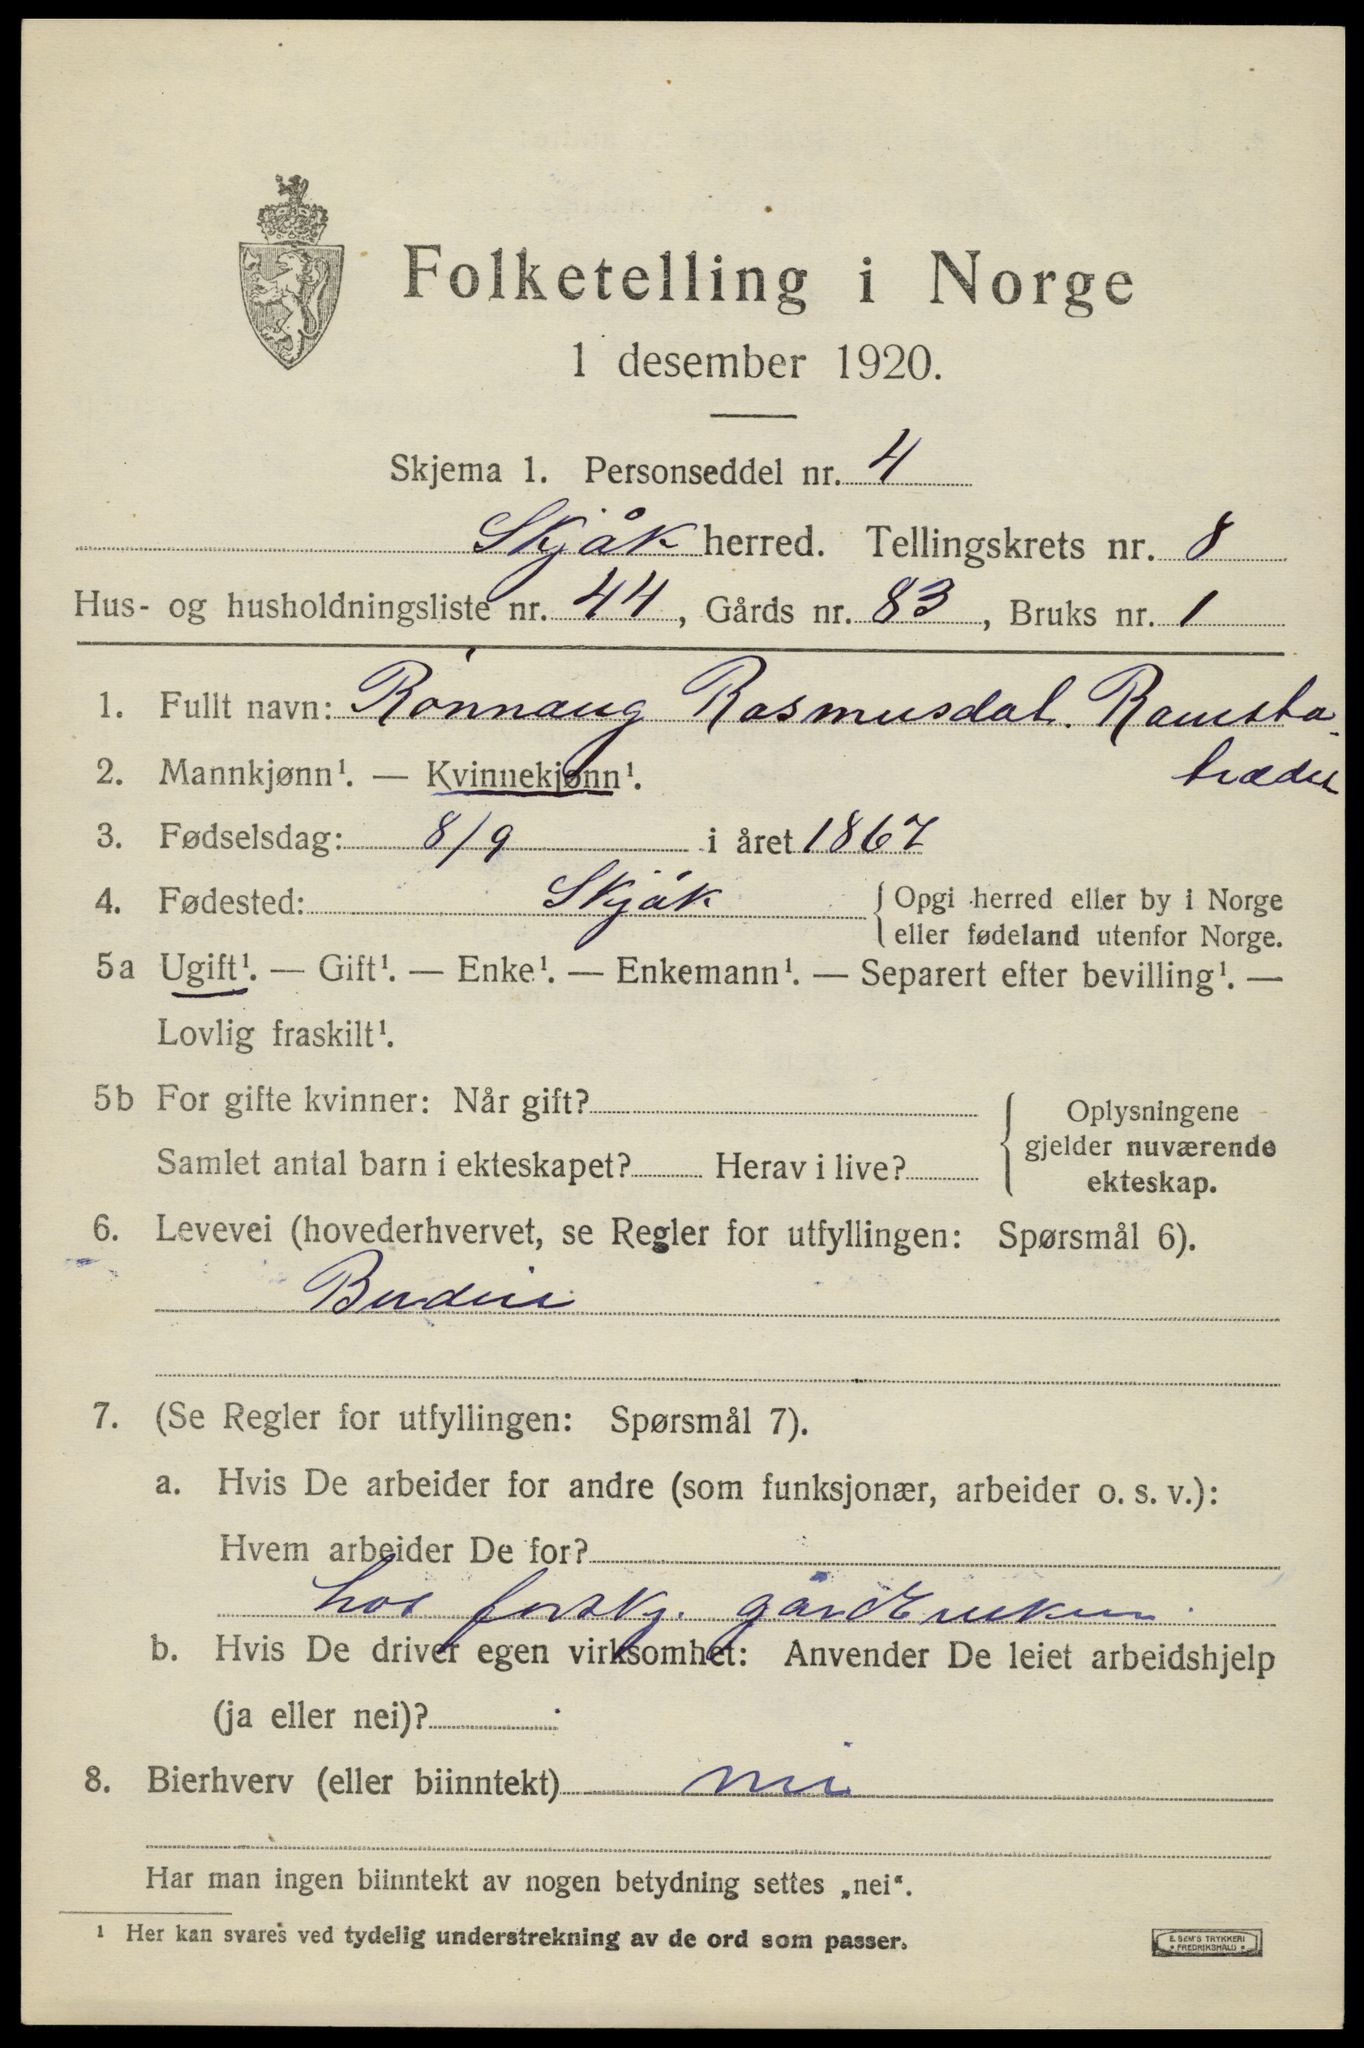 Folketelling i Norge
1 desember 1920.
Skjema 1. Personseddel nr. 4
Skjåk herred. Tellingskrets nr. 8
Hus- og husholdningsliste nr. 44, Gårds nr. 83, Bruks nr. 1
1. Fullt navn: Rønnaug Rasmusdat.
2. Mannkjønn¹. — Kvinnekjønn¹.
3. Fødselsdag: 8/9 i året 1867
4. Fødested: Skjåk { Opgi herred eller by i Norge
eller fødeland utenfor Norge.
5a Ugift¹. — Gift¹. — Enke¹. — Enkemann¹. — Separert efter bevilling¹. —
Lovlig fraskilt¹.
5b For gifte kvinner: Når gift?
Samlet antal barn i ekteskapet? Herav i live?
Oplysningene
gjelder nuværende
ekteskap.
6. Levevei (hovederhvervet, se Regler for utfyllingen: Spørsmål 6).
Budeie
7. (Se Regler for utfyllingen: Spørsmål 7).
a. Hvis De arbeider for andre (som funksjonær, arbeider o. s. v.):
Hvem arbeider De for?
hos forskj. gårdbrukere.
b. Hvis De driver egen virksomhet: Anvender De leiet arbeidshjelp
(ja eller nei)?
8. Bierhverv (eller biinntekt) nei
Har man ingen biinntekt av nogen betydning settes „nei“.
¹ Her kan svares ved tydelig understrekning av de ord som passer.
E. SEM'S TRYKKERI
FREDRIKSHALD